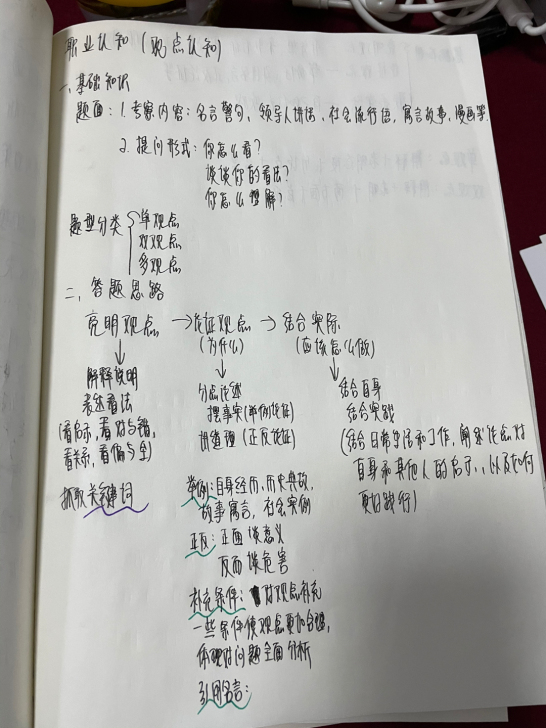 职业认知(观点认知)
一、基础知识
题面:1.考察内容:名言警句,领导人讲话,社会流行语,寓言故事,漫画等
2.提问形式:你怎么看?
谈谈你的看法?
你怎么理解?
题型分类
单观点
双观点
多观点
二、答题思路
亮明观点→论证观点→结合实际
(为什么)
(应该怎么做)
解释说明
表述看法
(看启示,看对与错,
看关系,看偏与全)
抓取关键词
分点论述
摆事实(举例论证)
讲道理(正反论证)
举例:自身经历,历史典故,
故事寓言,社会实例
正反:正面谈意义
反面谈危害
补充条件:对观点补充
一些条件使观点更加合理,
体现对问题全面分析
引用名言:
结合自身
结合实践
(结合日常生活和工作,阐述论点对
自身和其他人的启示,以及如何
更好践行)